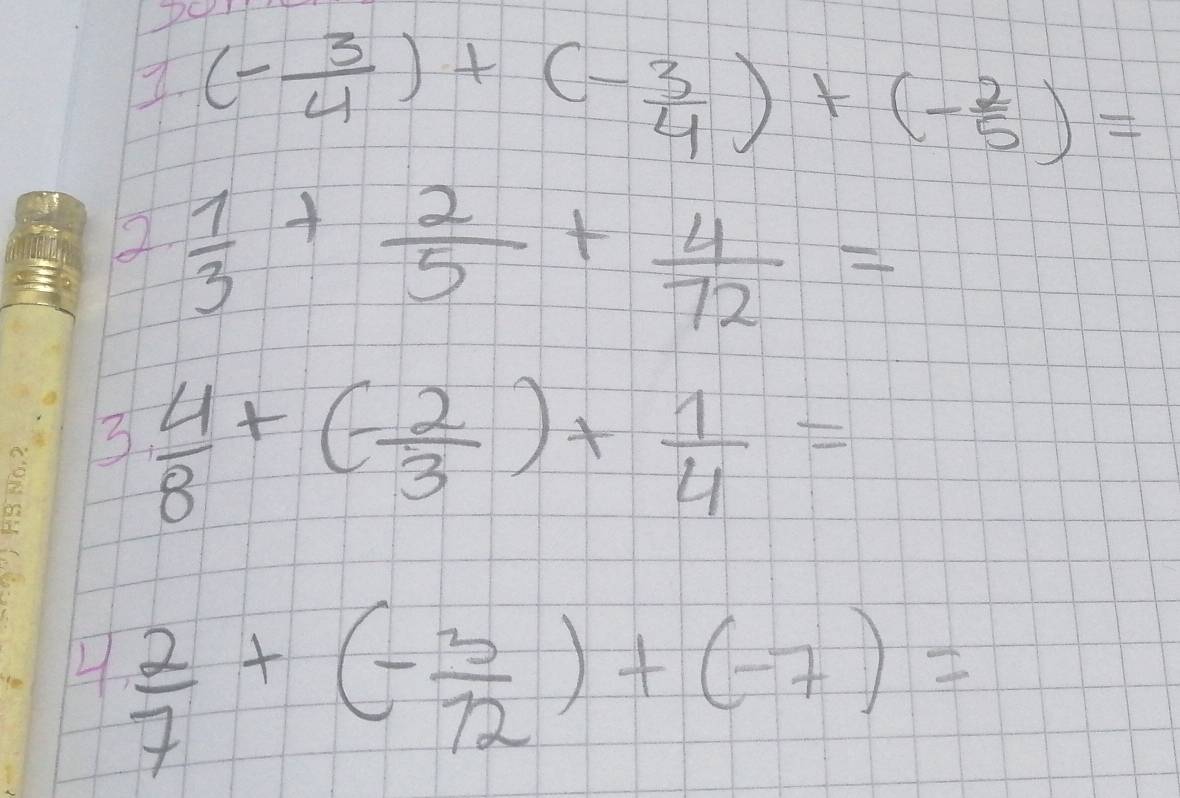 1. (-3/4) + (-3/4) + (-2/5) =
2. 1/3 + 2/5 + 4/12 =
3. 4/8 + (-2/3) + 1/4 =
4. 2/7 + (-3/12) + (-7) =
HB No.2